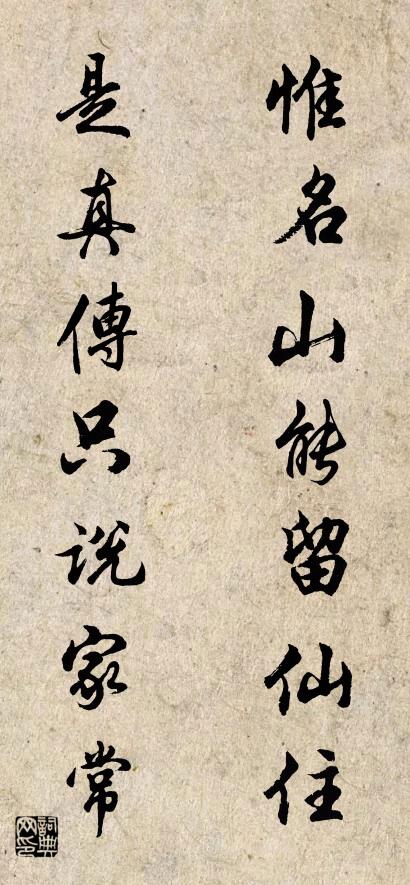 惟名山能留仙住
是真傳只說家常
詞典网印